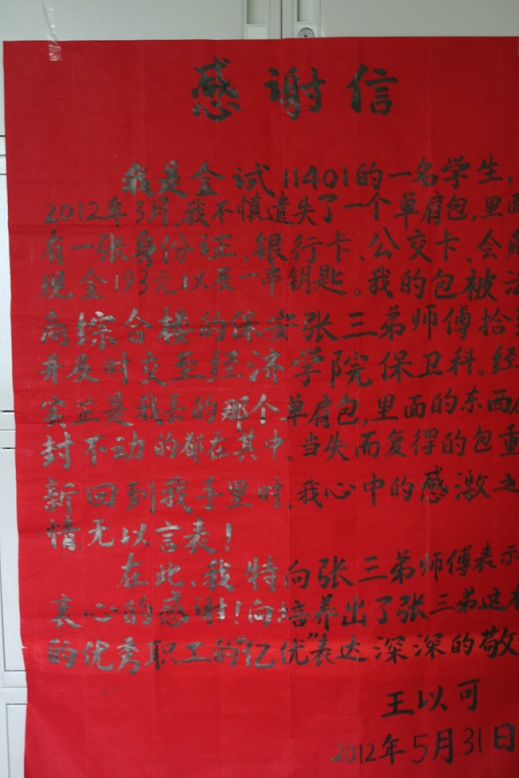 感谢信
我是金试11401的一名学生，
2012年3月，我不慎遗失了一个单肩包，里面
有一张身份证、银行卡、公交卡、会员
现金193元以及一串钥匙。我的包被法
商综合楼的保安张三弟师傅拾到
并及时交至经济学院保卫科。经
实正是我丢的那个单肩包，里面的东西原
封不动的都在其中。当失而复得的包重
新回到我手里时，我心中的感激之
情无以言表！
在此，我特向张三弟师傅表示
衷心的感谢！向培养出了张三弟这样
的优秀职工的“亿优”表达深深的敬
王以可
2012年5月31日